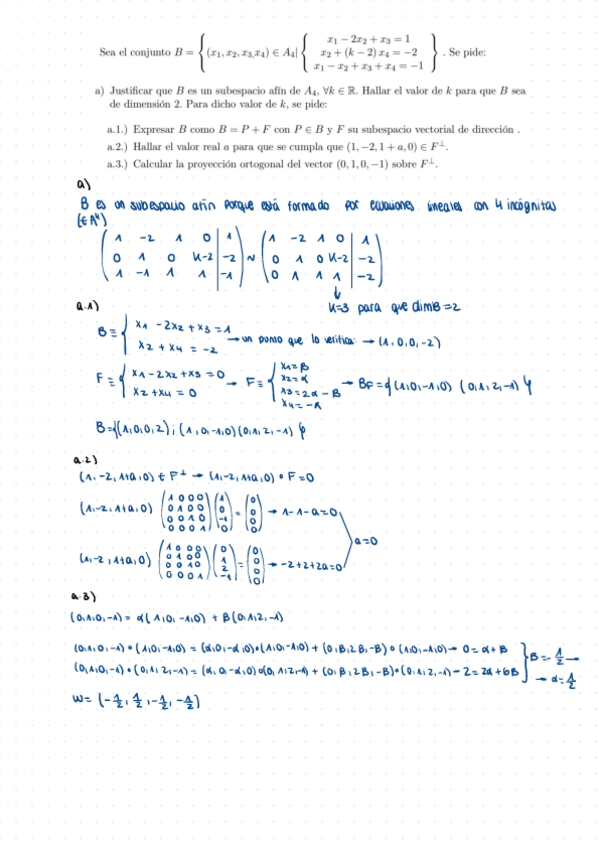 x₁ − 2x₂ + x₃ = 1
Sea el conjunto B = { (x₁, x₂, x₃, x₄) ∈ A₄| { x₂ + (k − 2) x₄ = −2 } . Se pide:
x₁ − x₂ + x₃ + x₄ = −1
a) Justificar que B es un subespacio afín de A₄, ∀k ∈ ℝ. Hallar el valor de k para que B sea
de dimensión 2. Para dicho valor de k, se pide:
a.1.) Expresar B como B = P + F con P ∈ B y F su subespacio vectorial de dirección .
a.2.) Hallar el valor real a para que se cumpla que (1, −2, 1 + a, 0) ∈ F⊥.
a.3.) Calcular la proyección ortogonal del vector (0, 1, 0, −1) sobre F⊥.
a)
B es un subespacio afín porque está formado por ecuaciones lineales con 4 incógnitas
(∈ A⁴)
( 1 -2 1 0 | 1 ) ~ ( 1 -2 1 0 | 1 )
( 0 1 0 k-2 | -2 ) ( 0 1 0 k-2 | -2 )
( 1 -1 1 1 | -1 ) ( 0 1 1 1 | -2 )
↓
k=3 para que dimB=2
a.1)
B ≡ { x1 - 2x2 + x3 = 1
x2 + x4 = -2 → un punto que lo verifica: → (1, 0, 0, -2)
F ≡ { x1 - 2x2 + x3 = 0
x2 + x4 = 0 → F ≡ { x1 = β
x2 = α
x3 = 2α - β
x4 = -α → BF = { (1,0,-1,0) (0,1,2,-1) }
B = {(1,0,0,2) ; (1,0,-1,0) (0,1,2,-1) }
a.2)
(1,-2,1+a,0) ∈ F⊥ → (1,-2,1+a,0) • F = 0
(1,-2,1+a,0) ( 1 0 0 0 ) ( 1 ) = ( 0 ) → 1-1-a=0
( 0 1 0 0 ) ( 0 ) ( 0 )
( 0 0 1 0 ) ( -1 ) ( 0 )
( 0 0 0 1 ) ( 0 ) ( 0 )
a=0
(1,-2,1+a,0) ( 1 0 0 0 ) ( 0 ) = ( 0 ) → -2+2+2a=0
( 0 1 0 0 ) ( 1 ) ( 0 )
( 0 0 1 0 ) ( 2 ) ( 0 )
( 0 0 0 1 ) ( -1 ) ( 0 )
a.3)
(0,1,0,-1) = α(1,0,-1,0) + β(0,1,2,-1)
(0,1,0,-1) • (1,0,-1,0) = (α,0,-α,0)•(1,0,-1,0) + (0,β,2β,-β)•(1,0,-1,0) → 0 = α + β } β = -1/2 →
(0,1,0,-1) • (0,1,2,-1) = (α,0,-α,0)•(0,1,2,-1) + (0,β,2β,-β)•(0,1,2,-1) → 2 = 2α + 6β → α = 1/2
w = (-1/2, 1/2, -1/2, -1/2)